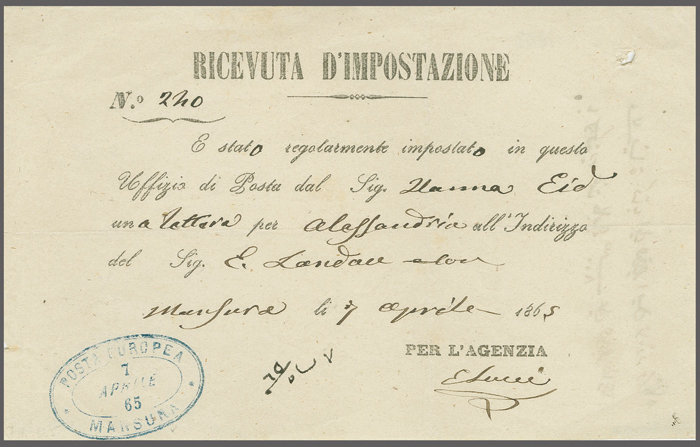 RICEVUTA D'IMPOSTAZIONE
N.º 240
È stato regolarmente impostato in questo
Uffizio di Posta dal Sig. Hanna Eid
una lettera per Alessandria all'Indirizzo
del Sig. E. Landau
Mansura li 7 Aprile 1865
PER L'AGENZIA
POSTA EUROPEA
7
APRILE
65
MANSURA